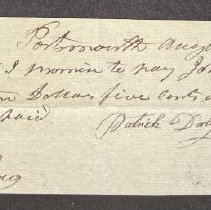 Portsmouth Augt
I promise to pay Jo
Dollars five cents
paid
Patrick Da